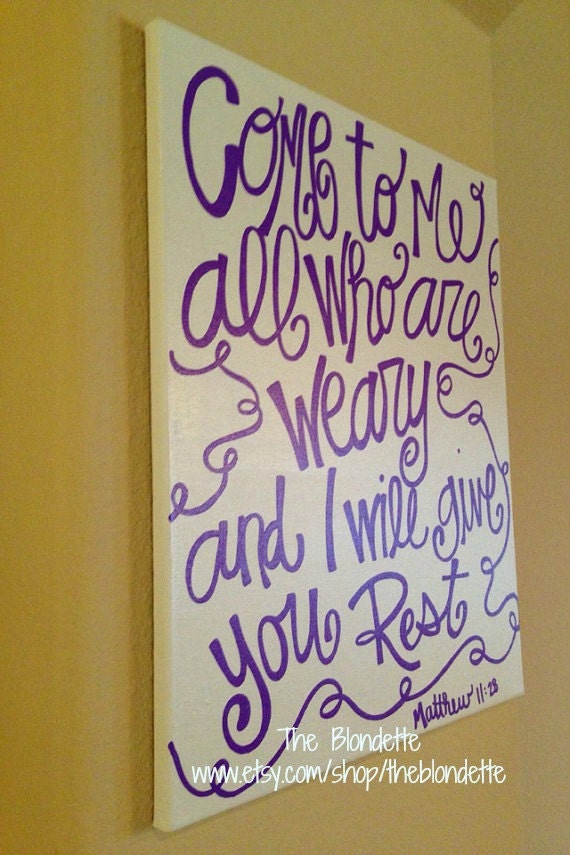 Come to me
all who are
weary
and I will give
you Rest
Matthew 11:28
The Blondette
www.etsy.com/shop/theblondette